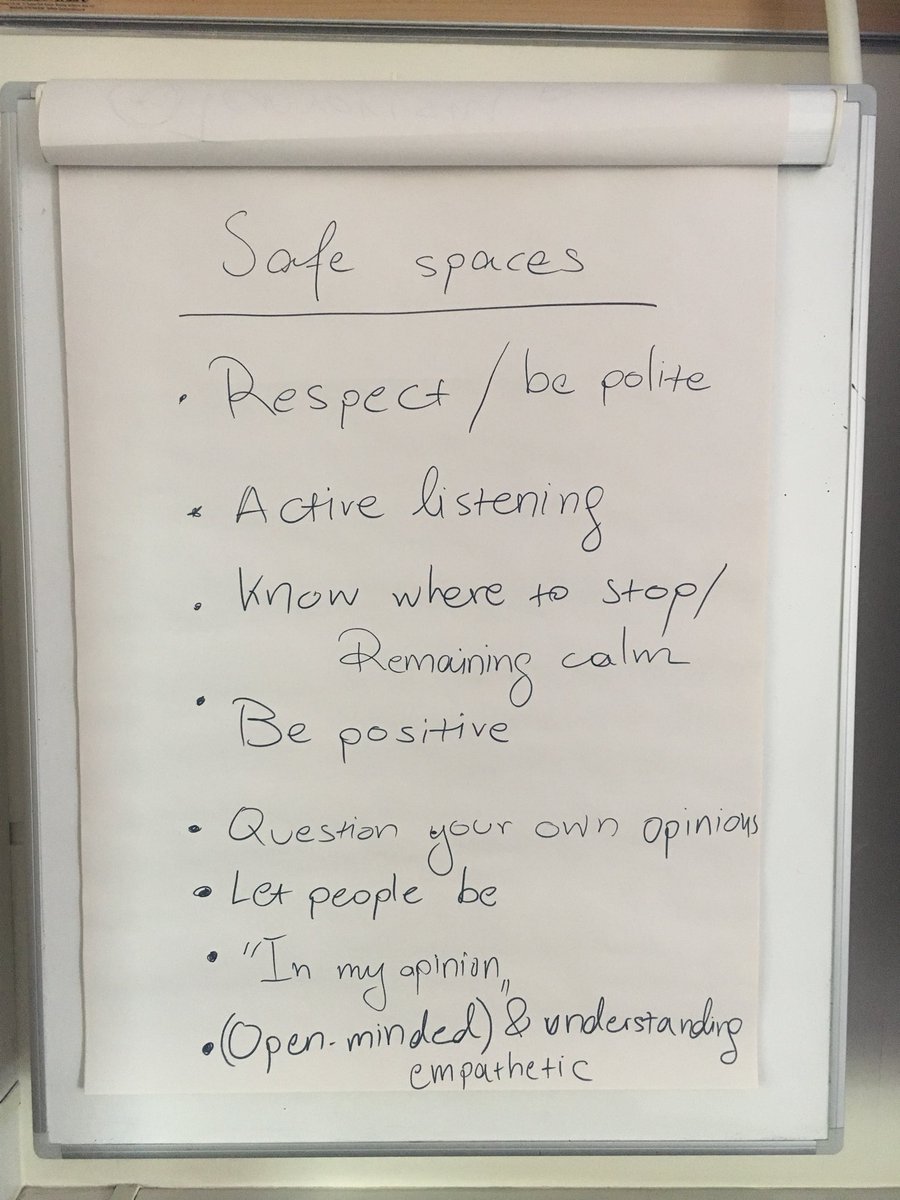 Safe spaces
• Respect / be polite
• Active listening
• Know where to stop/
Remaining calm
• Be positive
• Question your own opinions
• Let people be
• "In my opinion„
• (Open-minded) & understanding
empathetic